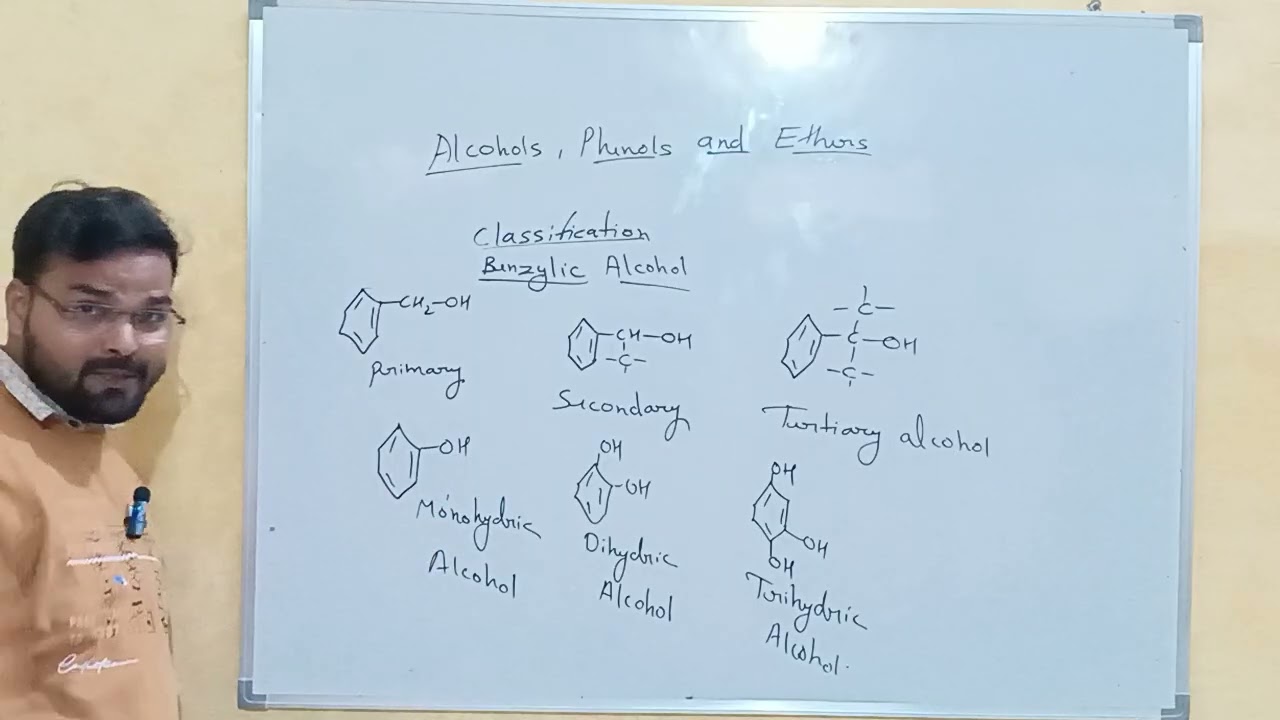 Alcohols, Phenols and Ethers
Classification
Benzylic Alcohol
CH2-OH
Primary
CH-OH
-C-
Secondary
-C-
C-OH
-C-
Tertiary alcohol
OH
Monohydric
Alcohol
OH
-OH
Dihydric
Alcohol
OH
OH
OH
Trihydric
Alcohol.